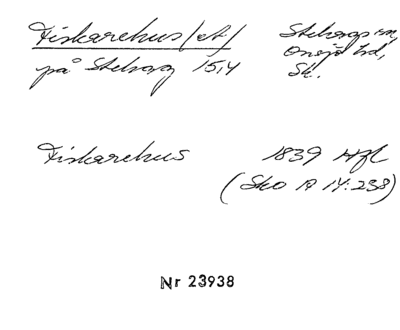 Fiskarehus (et)
på Stehag 15,4
Stehags sn,
Onsjö hd,
Sk.
Fiskarehus
1839 Hfl
(Sko A 14:238)
Nr 23938